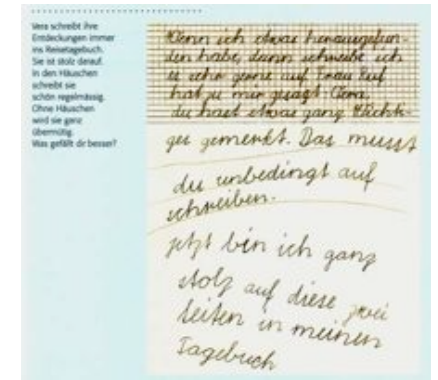 Vera schreibt ihre
Entdeckungen immer
ins Reisetagebuch.
Sie ist stolz darauf.
In den Häuschen
schreibt sie
schön regelmässig.
Ohne Häuschen
wird sie ganz
übermütig.
Was gefällt dir besser?
Wenn ich etwas herausgefun-
den habe, dann schreibe ich
es sehr gerne auf. Frau Ruf
hat zu mir gesagt: Vera,
du hast etwas ganz Wichti-
ges gemerkt. Das musst
du unbedingt auf
schreiben.
jetzt bin ich ganz
stolz auf diese zwei
Seiten in meinen
Tagebuch